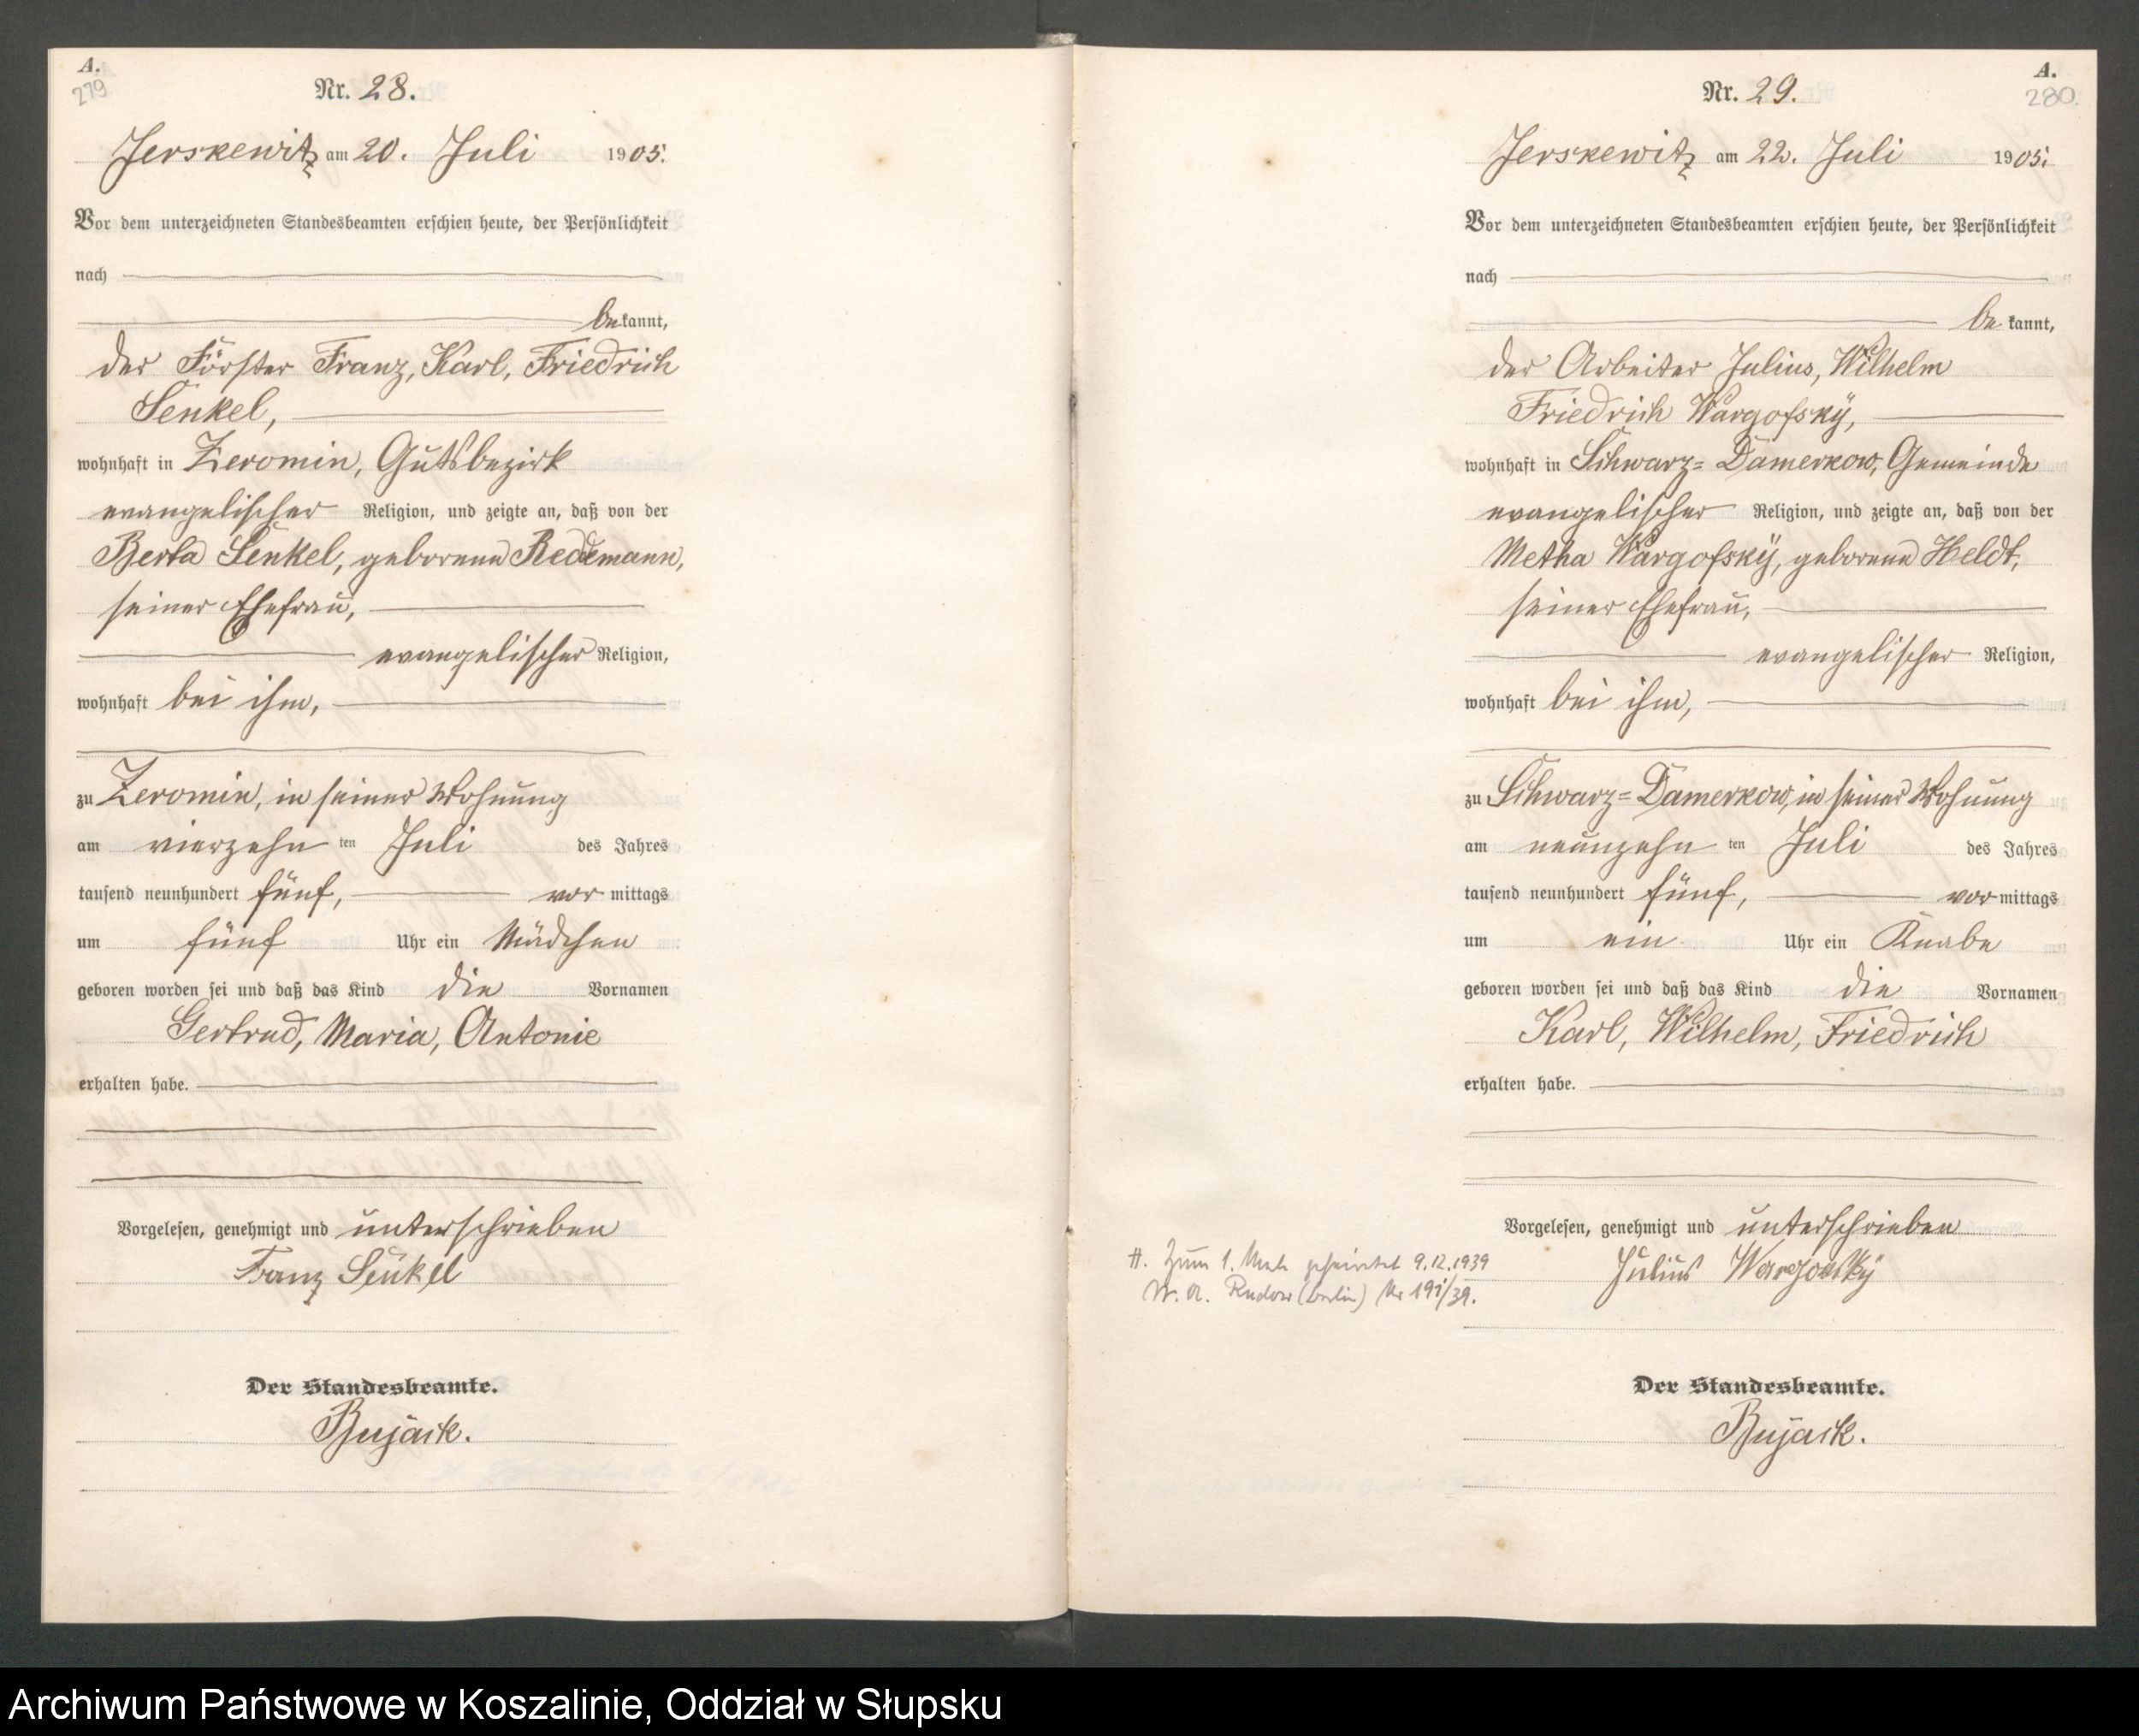 A.
279
Nr. 28.
Jerskewitz am 20. Juli 1905.
Vor dem unterzeichneten Standesbeamten erschien heute, der Persönlichkeit
nach
bekannt,
der Förster Franz, Karl, Friedrich
Senkel,
wohnhaft in Zeromin, Gutsbezirk
evangelischer Religion, und zeigte an, daß von der
Berta Senkel, geborene Redemann,
seiner Ehefrau,
evangelischer Religion,
wohnhaft bei ihm,
zu Zeromin, in seiner Wohnung
am vierzehn ten Juli des Jahres
tausend neunhundert fünf, vor mittags
um fünf Uhr ein Mädchen
geboren worden sei und daß das Kind die Vornamen
Gertrud, Maria, Antonie
erhalten habe.
Vorgelesen, genehmigt und unterschrieben
Franz Senkel
Der Standesbeamte.
Bujack.
A.
280.
Nr. 29.
Jerskewitz am 22. Juli 1905.
Vor dem unterzeichneten Standesbeamten erschien heute, der Persönlichkeit
nach
be kannt,
der Arbeiter Julius, Wilhelm
Friedrich Wargofsky,
wohnhaft in Schwarz=Damerkow, Gemeinde
evangelischer Religion, und zeigte an, daß von der
Metha Wargofsky, geborene Heldt,
seiner Ehefrau,
evangelischer Religion,
wohnhaft bei ihm,
zu Schwarz=Damerkow, in seiner Wohnung
am neunzehn ten Juli des Jahres
tausend neunhundert fünf, vor mittags
um ein Uhr ein Knabe
geboren worden sei und daß das Kind die Vornamen
Karl, Wilhelm, Friedrich
erhalten habe.
Vorgelesen, genehmigt und unterschrieben
Julius Wargowsky
H. Zum 1. Male geheiratet 9.12.1939
St. A. Rudow (Berlin) Nr 191/39.
Der Standesbeamte.
Bujack.
Archiwum Państwowe w Koszalinie, Oddział w Słupsku